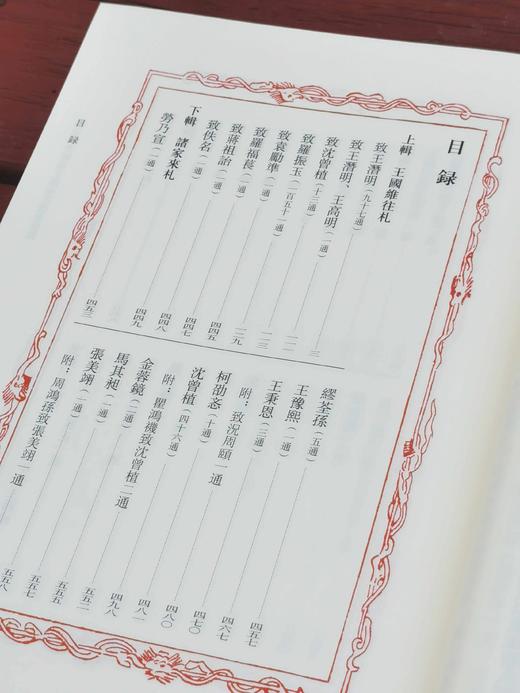 目録
上輯 王國維往札
致王潛明（九十七通）……三
致王潛明、王高明（一通）……
致沈曾植（十三通）……一一三
致羅振玉（二百五十一通）……一二九
致袁勵準（一通）……四四五
致羅福萇（一通）……四四七
致蔣祖詒（一通）……四四八
致佚名（一通）……四四九
下輯 諸家來札
勞乃宣（一通）……四五三
繆荃孫（五通）……四五七
王豫熙（一通）……四六七
王秉恩（三通）……四七〇
附：致況周頤一通……四八〇
柯劭忞（十通）……四八一
沈曾植（四十六通）……四九八
附：瞿鴻禨致沈曾植二通……五五二
金蓉鏡（二通）……五五五
馬其昶（一通）……五五七
張美翊（一通）……五五八
附：周鴻孫致張美翊一通
目録